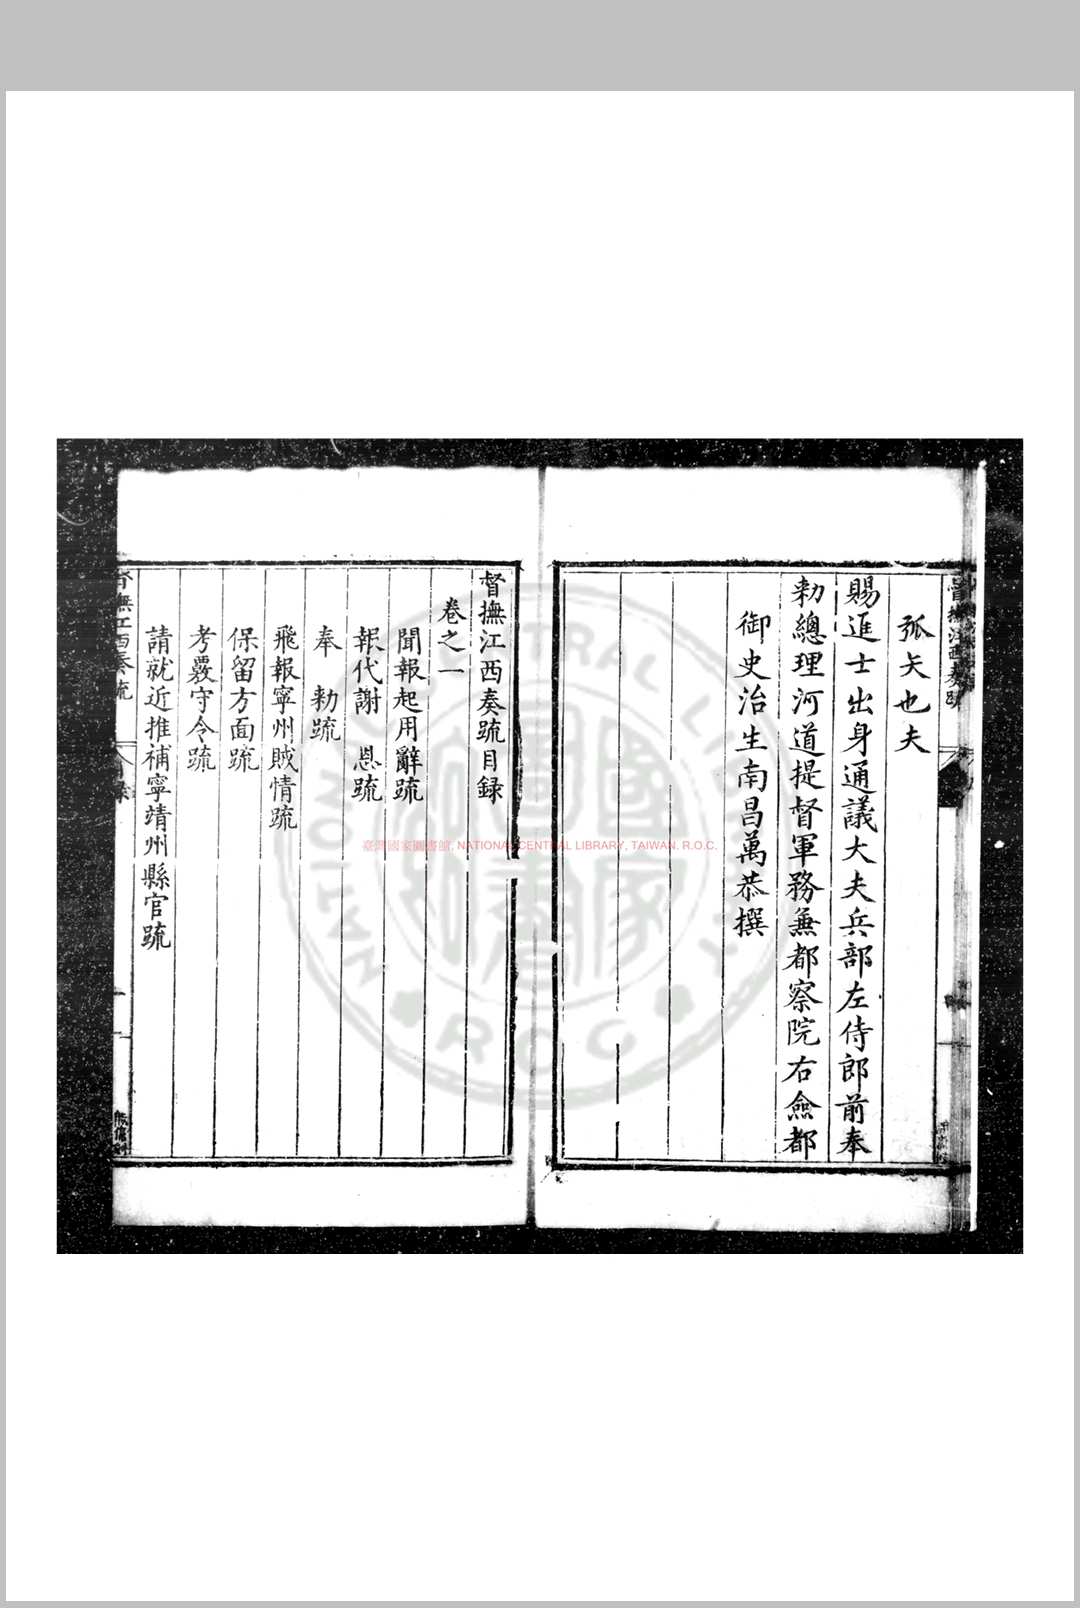 孤矢也夫
賜進士出身通議大夫兵部左侍郎前奉
勑總理河道提督軍務兼都察院右僉都
御史治生南昌萬恭撰
督撫江西奏疏目録
卷之一
聞報起用辭疏
報代謝 恩疏
奉 勑疏
飛報寧州賊情疏
保留方面疏
考覈守令疏
請就近推補寧靖州縣官疏
督撫江西奏疏
臺灣國家圖書館, NATIONAL CENTRAL LIBRARY, TAIWAN. R.O.C.